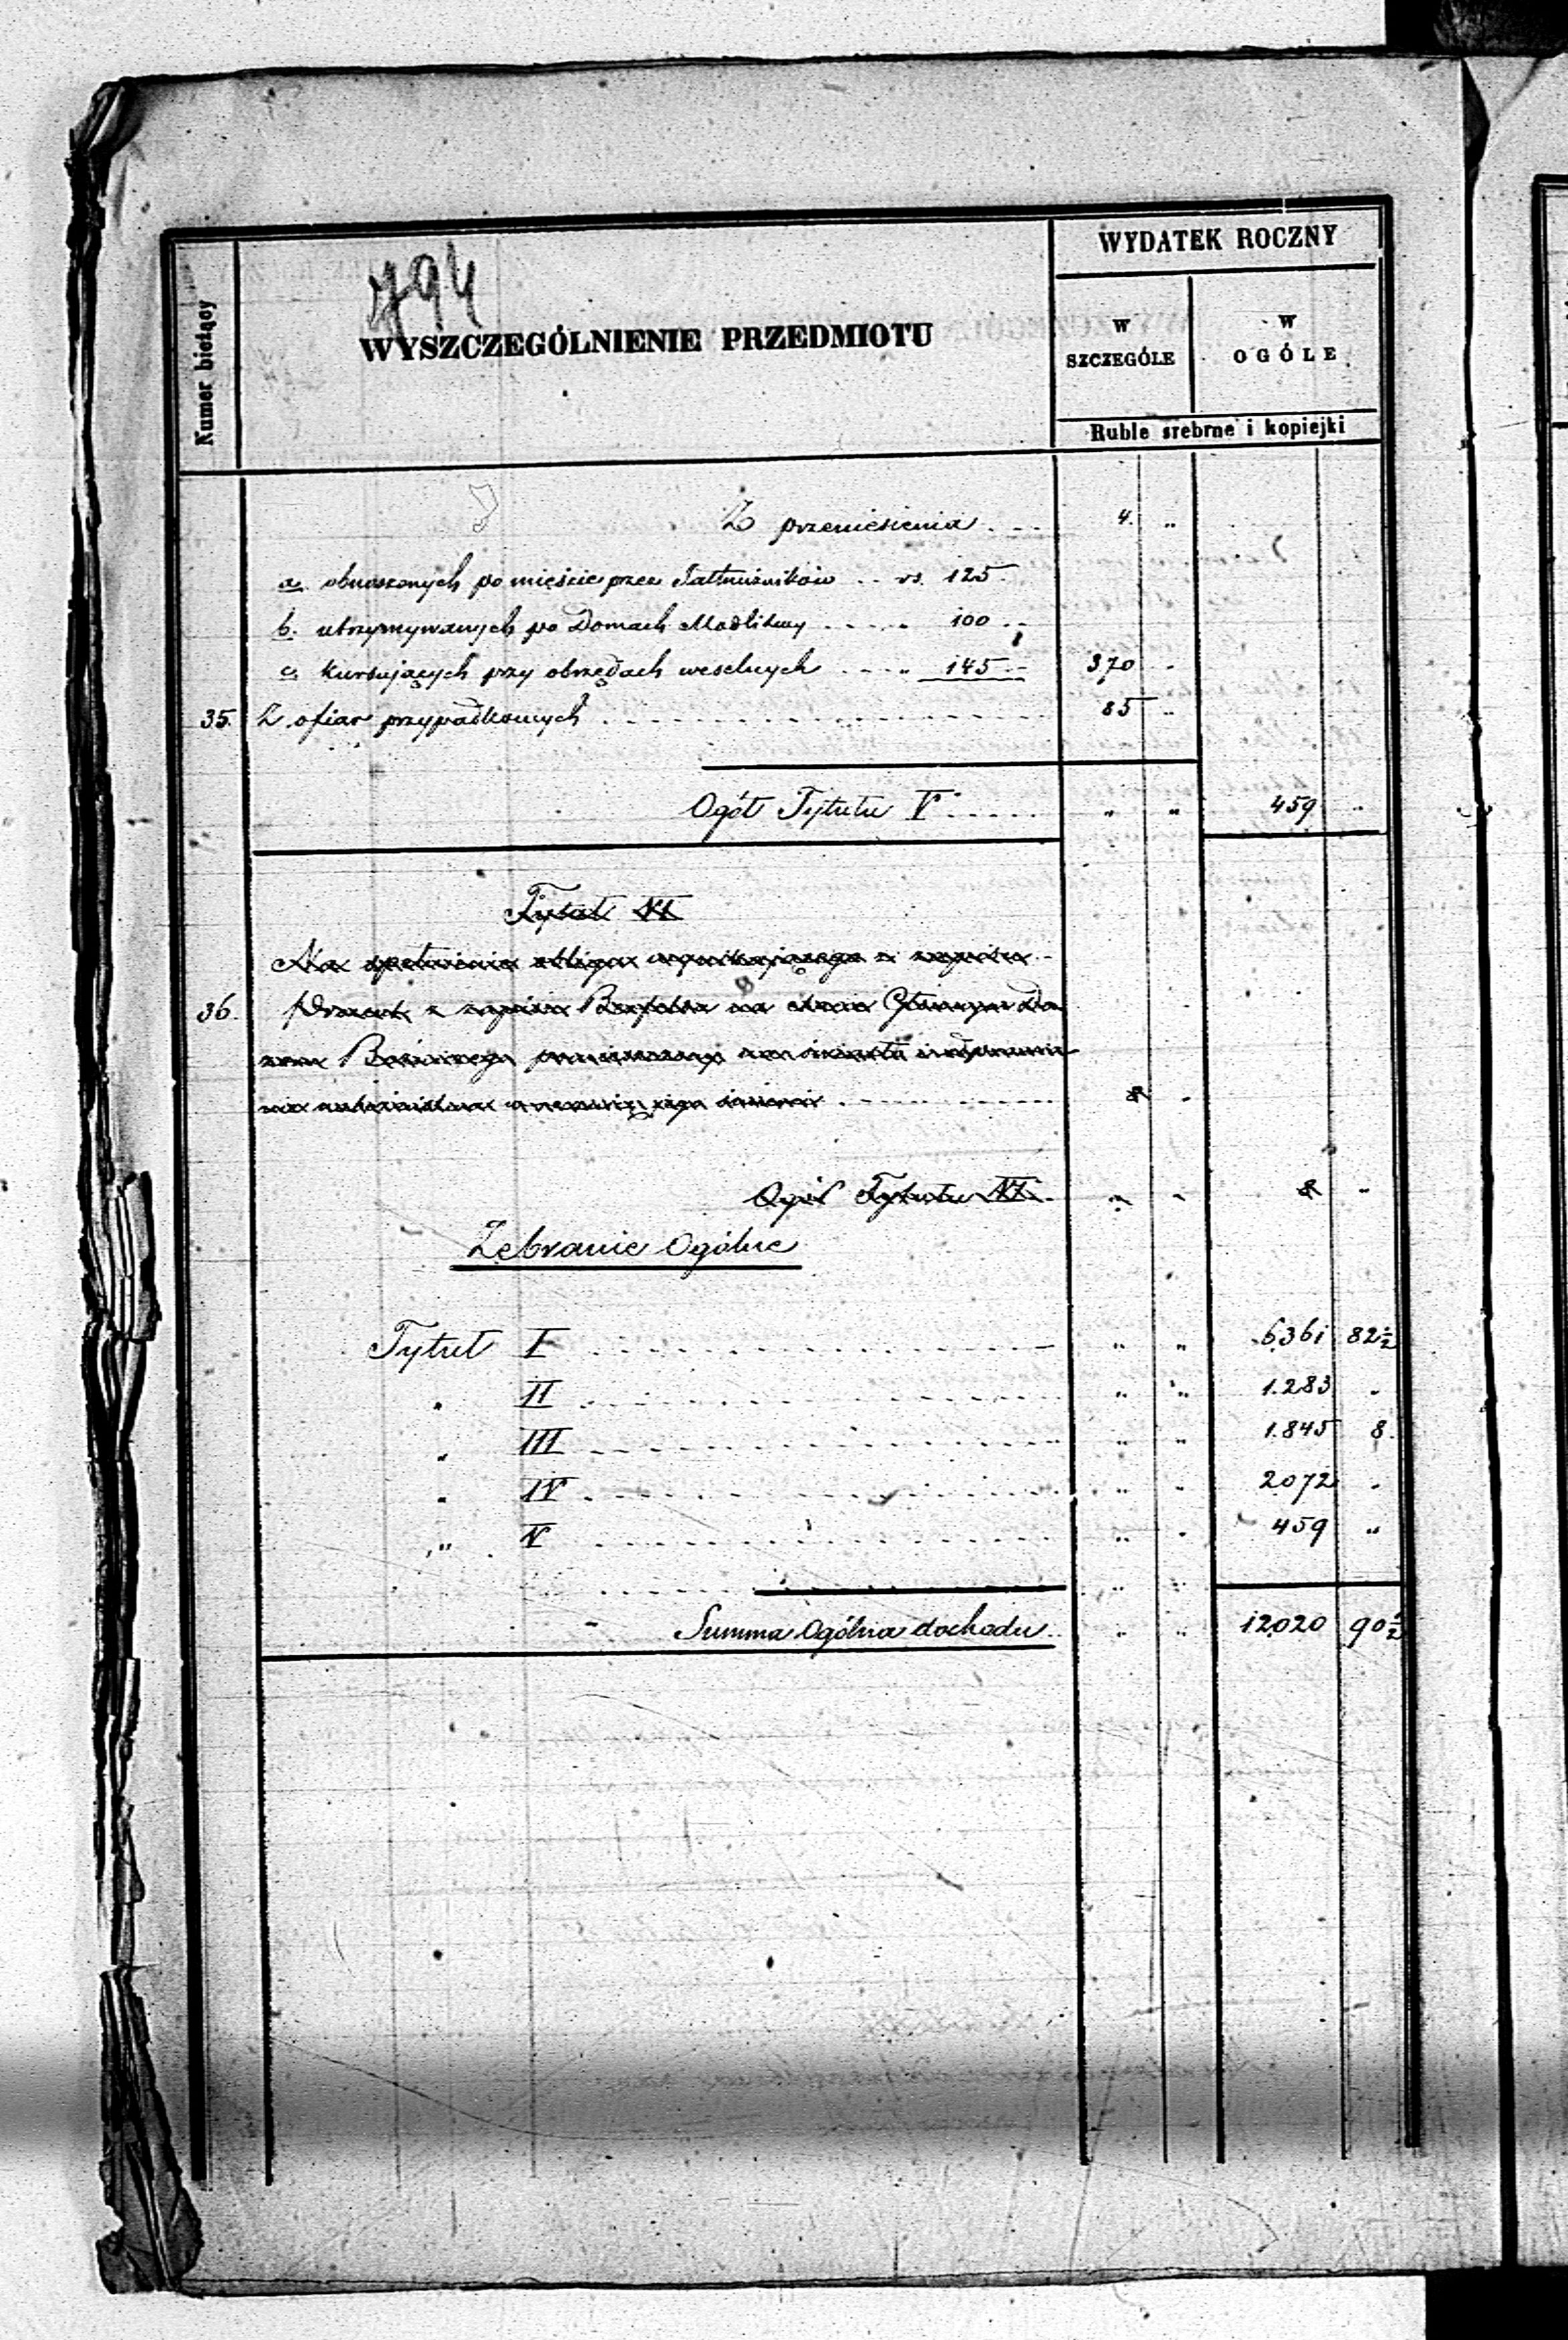 794
Numer bieżący
WYSZCZEGÓLNIENIE PRZEDMIOTU
WYDATEK ROCZNY
W SZCZEGÓLE
W OGÓLE
Ruble srebrne i kopiejki
Z przeniesienia . - - 4. „
a. obnoszonych po mieście przez Jałmużników . . rs. 125.
b. utrzymywanych po Domach Modlitwy . . . . „ 100 . -
c. kursujących przy obrzędach weselnych . . . „ 145 . - 370 „
35. Z ofiar przypadkowych . . . . 85 „
Ogół Tytułu V . . . . . „ „ 459 „
Tytuł VI
Na spełnienie obligu wynikającego z zapisu
36. Procent z zapisu
Ogół Tytułu VI. „ „ „
Zebranie Ogólne
Tytuł I . . . . „ „ 6361 82½
„ II . . . . „ „ 1.283 „
„ III . . . . „ „ 1.845 8.
„ IV . . . . „ „ 2072 „
„ V . . . . „ „ 459 „
Summa Ogólna dochodu . „ „ 12020 90½